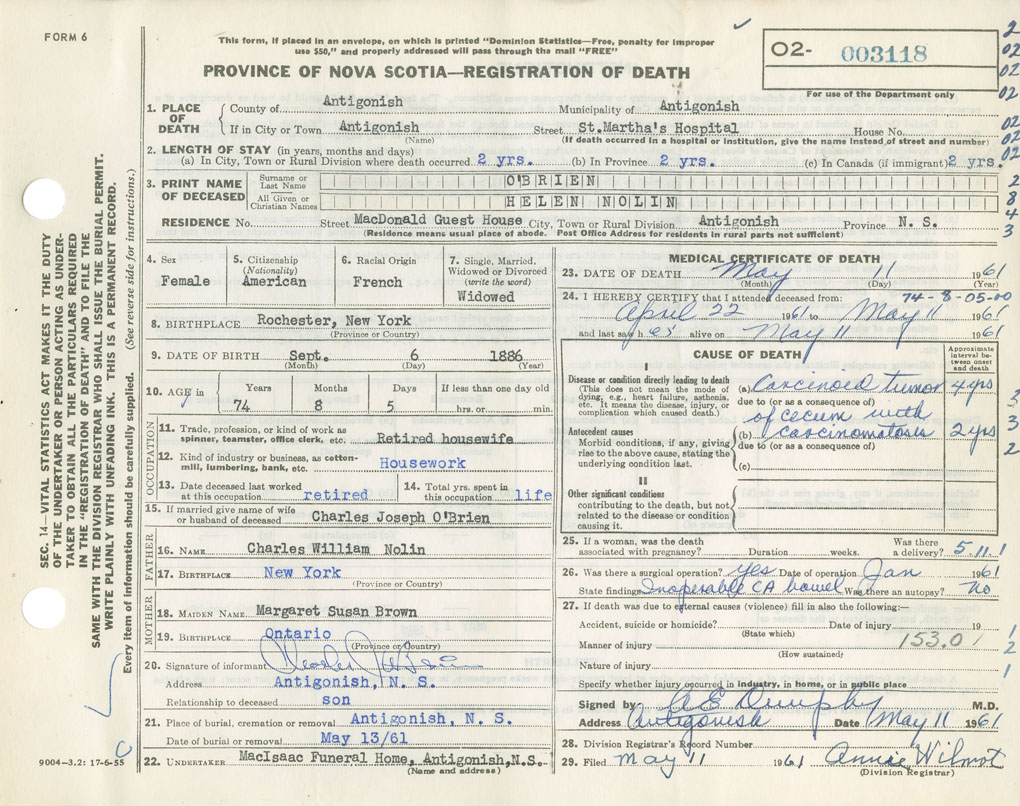 FORM 6
This form, if placed in an envelope, on which is printed "Dominion Statistics—Free, penalty for improper
use $50," and properly addressed will pass through the mail "FREE"
PROVINCE OF NOVA SCOTIA—REGISTRATION OF DEATH
O2- 003118
For use of the Department only
1. PLACE OF DEATH
County of Antigonish Municipality of Antigonish
If in City or Town Antigonish Street St.Martha's Hospital House No.
(Name) (If death occurred in a hospital or institution, give the name instead of street and number)
2. LENGTH OF STAY (in years, months and days)
(a) In City, Town or Rural Division where death occurred 2 yrs. (b) In Province 2 yrs. (c) In Canada (if immigrant) 2 yrs.
3. PRINT NAME OF DECEASED
Surname or Last Name O'BRIEN
All Given or Christian Names HELEN NOLIN
RESIDENCE No. Street MacDonald Guest House City, Town or Rural Division Antigonish Province N. S.
(Residence means usual place of abode. Post Office Address for residents in rural parts not sufficient)
4. Sex
Female
5. Citizenship
(Nationality)
American
6. Racial Origin
French
7. Single, Married,
Widowed or Divorced
(write the word)
Widowed
8. BIRTHPLACE Rochester, New York
(Province or Country)
9. DATE OF BIRTH Sept. 6 1886
(Month) (Day) (Year)
10. AGE in Years Months Days If less than one day old
74 8 5 hrs. or min.
OCCUPATION
11. Trade, profession, or kind of work as
spinner, teamster, office clerk, etc. Retired housewife
12. Kind of industry or business, as cotton-
mill, lumbering, bank, etc. Housework
13. Date deceased last worked
at this occupation retired
14. Total yrs. spent in
this occupation life
15. If married give name of wife
or husband of deceased Charles Joseph O'Brien
FATHER
16. NAME Charles William Nolin
17. BIRTHPLACE New York
(Province or Country)
MOTHER
18. MAIDEN NAME Margaret Susan Brown
19. BIRTHPLACE Ontario
(Province or Country)
20. Signature of informant
Address Antigonish, N. S.
Relationship to deceased son
21. Place of burial, cremation or removal Antigonish, N. S.
Date of burial or removal May 13/61
22. UNDERTAKER MacIsaac Funeral Home, Antigonish,N.S.
(Name and address)
MEDICAL CERTIFICATE OF DEATH
23. DATE OF DEATH May 11 1961
(Month) (Day) (Year)
74-8-05-00
24. I HEREBY CERTIFY that I attended deceased from:
April 22 1961 to May 11 1961
and last saw her alive on May 11 1961
CAUSE OF DEATH
Approximate
interval be-
tween onset
and death
I
Disease or condition directly leading to death
(This does not mean the mode of
dying, e.g., heart failure, asthenia,
etc. It means the disease, injury, or
complication which caused death.)
(a) Carcinoid tumor 4 yrs
due to (or as a consequence of)
of cecum with
(b) carcinomatosis 2 yrs
due to (or as a consequence of)
(c)
Antecedent causes
Morbid conditions, if any, giving
rise to the above cause, stating the
underlying condition last.
II
Other significant conditions
contributing to the death, but not
related to the disease or condition
causing it.
25. If a woman, was the death
associated with pregnancy? Duration weeks. Was there
a delivery? 5.11.1
26. Was there a surgical operation? yes Date of operation Jan 1961
State findings Inoperable CA bowel Was there an autopsy? No
27. If death was due to external causes (violence) fill in also the following:—
Accident, suicide or homicide? Date of injury 19
(State which)
Manner of injury 153.0
(How sustained)
Nature of injury
Specify whether injury occurred in industry, in home, or in public place
Signed by A E Dunphy M.D.
Address Antigonish Date May 11 1961
28. Division Registrar's Record Number
29. Filed May 11 1961 Annie Wilmot
(Division Registrar)
SEC. 14—VITAL STATISTICS ACT MAKES IT THE DUTY
OF THE UNDERTAKER OR PERSON ACTING AS UNDER-
TAKER TO OBTAIN ALL THE PARTICULARS REQUIRED
IN THE "REGISTRATION OF DEATH" AND TO FILE THE
SAME WITH THE DIVISION REGISTRAR WHO SHALL ISSUE THE BURIAL PERMIT.
WRITE PLAINLY WITH UNFADING INK. THIS IS A PERMANENT RECORD.
Every item of information should be carefully supplied. (See reverse side for instructions.)
9004—3.2: 17-6-55
2
02
02
02
02
02
02
2
8
4
3
3
3
2
1
1
2
1